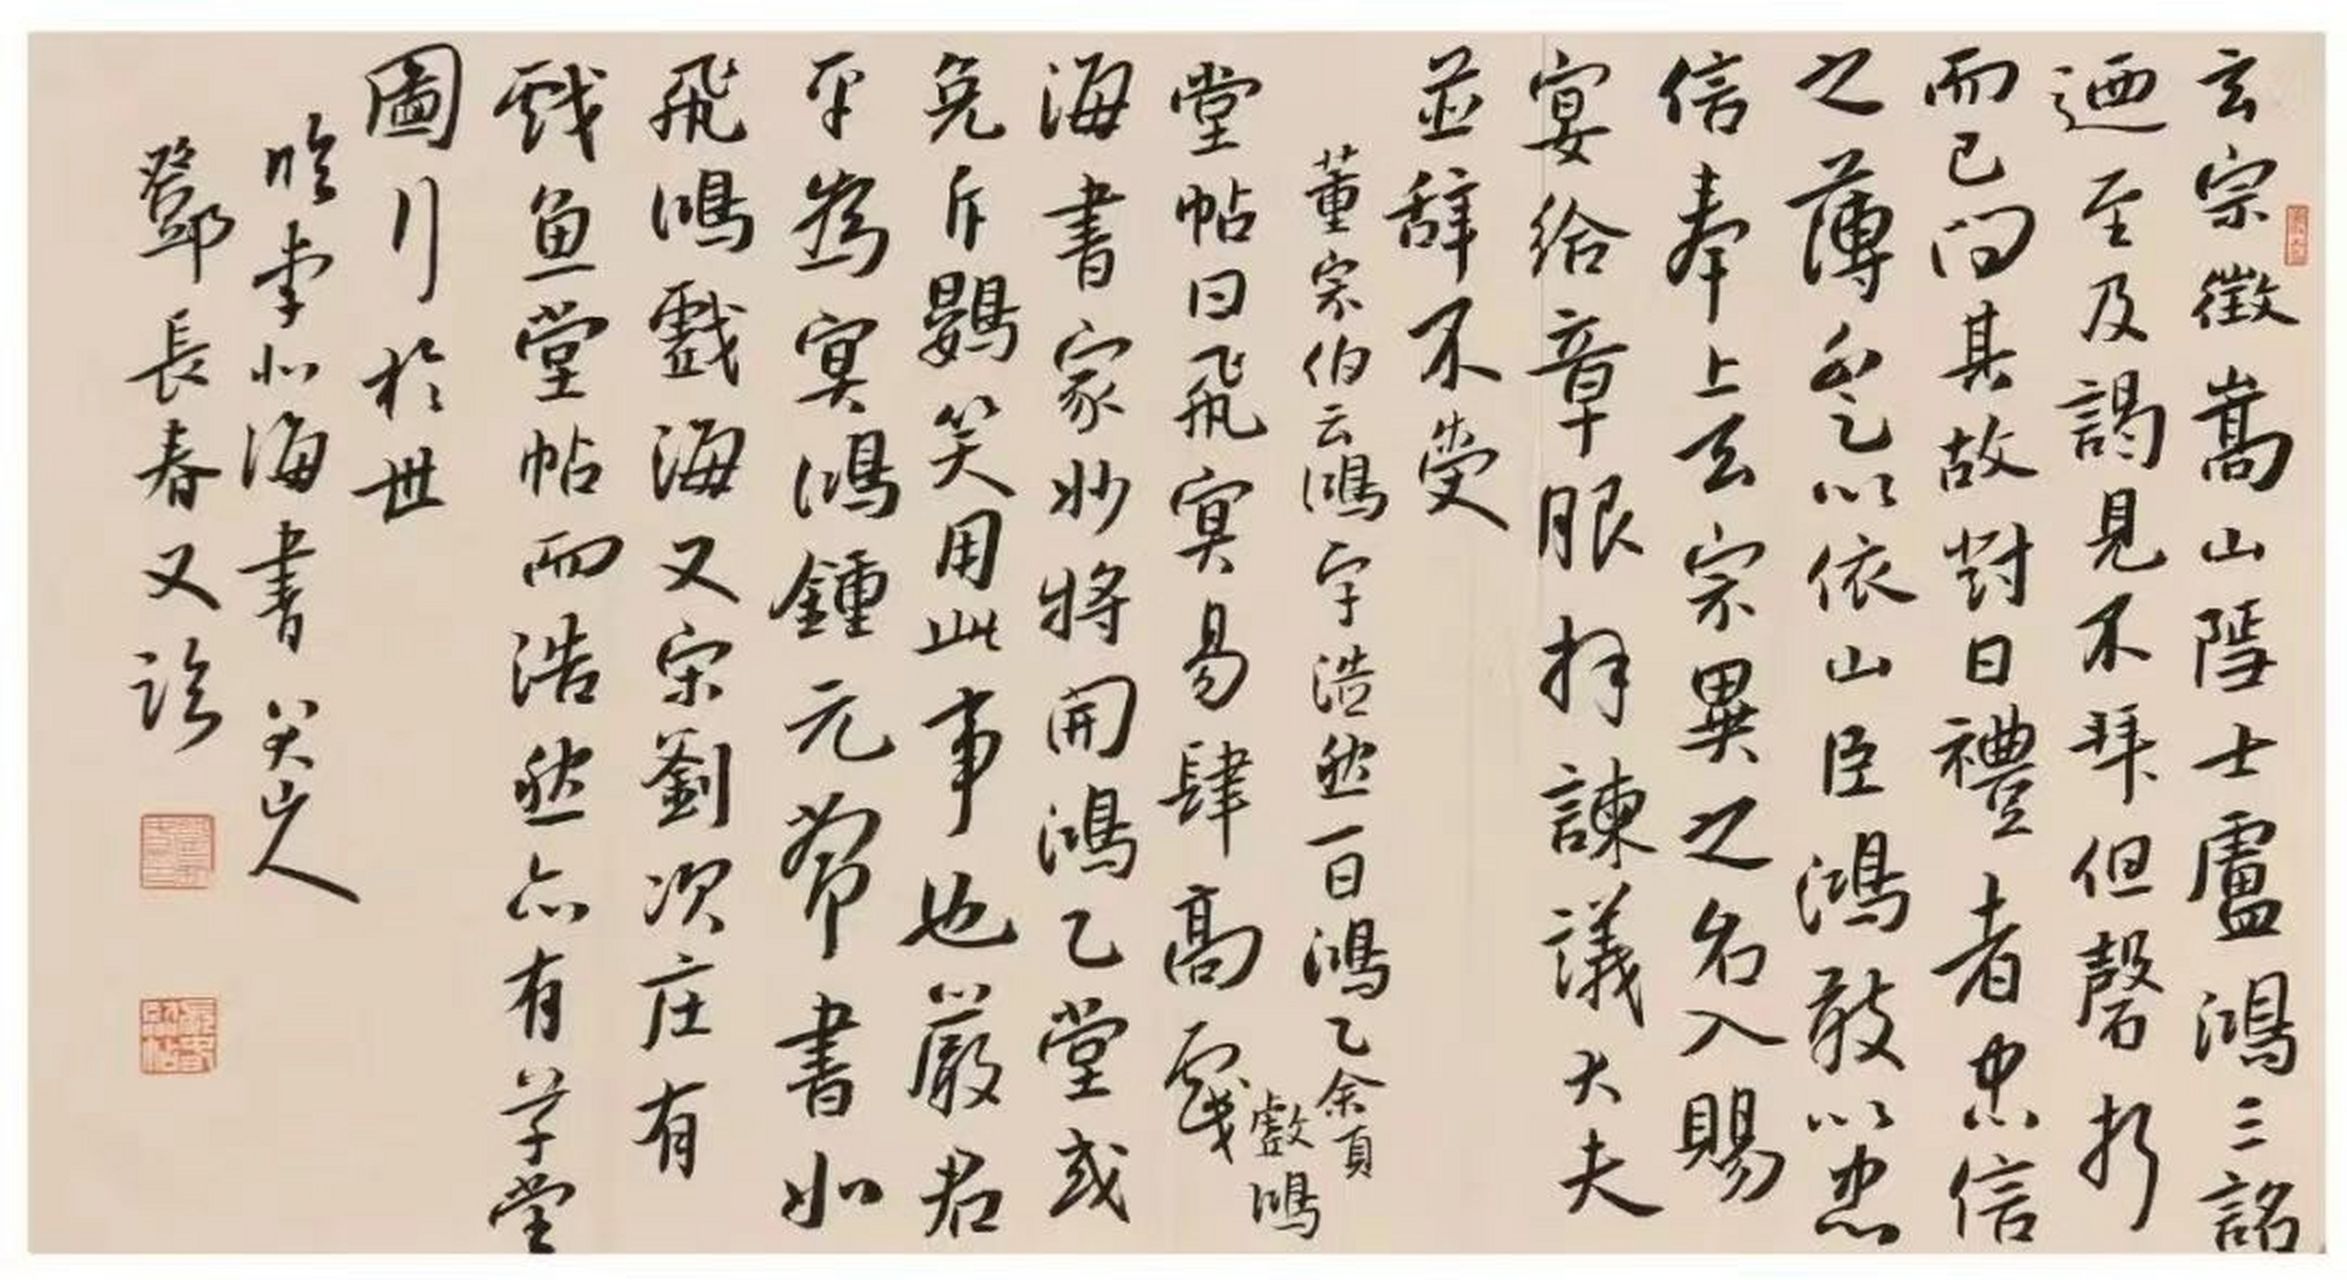 玄宗徵嵩山隱士盧鴻三詔
迺至及謁見不拜但磬折
而已问其故對曰禮者忠信
之薄不足以依山臣鴻敢以忠
信奉上玄宗異之名入賜
宴給章服拜諫議大夫
並辞不受
董宗伯云鴻字浩然一曰鴻乙余頁
戲鴻
堂帖曰飛冥易肆高戲
海書家妙将開鴻乙堂或
免斥鷃笑用此事也嚴君
平為冥鴻鍾元常書如
飛鴻戲海又宋劉次庄有
戲魚堂帖而浩然亦有草堂
圖行於世
临李北海書 八大山人
鄧長春又临